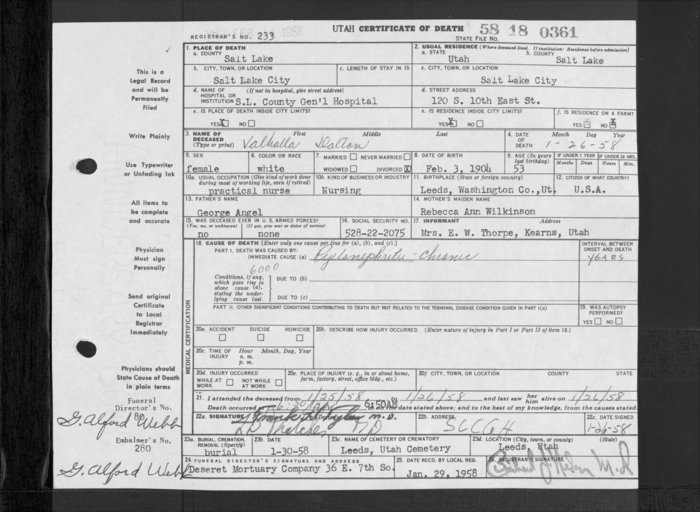 UTAH CERTIFICATE OF DEATH 58 18 0361
REGISTRAR'S NO. 233 STATE FILE NO.
1. PLACE OF DEATH 2. USUAL RESIDENCE (Where deceased lived. If institution: Residence before admission)
a. COUNTY Salt Lake a. STATE Utah b. COUNTY Salt Lake
b. CITY, TOWN, OR LOCATION Salt Lake City c. LENGTH OF STAY IN 1b c. CITY, TOWN, OR LOCATION Salt Lake City
d. NAME OF HOSPITAL OR INSTITUTION (If not in hospital, give street address) S.L. County Gen'l Hospital d. STREET ADDRESS 120 S. 10th East St.
e. IS PLACE OF DEATH INSIDE CITY LIMITS? YES X NO e. IS RESIDENCE INSIDE CITY LIMITS? YES X NO f. IS RESIDENCE ON A FARM? YES NO X
3. NAME OF DECEASED (Type or print) First Middle Last Valhalla Dotton 4. DATE OF DEATH Month Day Year 1-26-58
5. SEX female 6. COLOR OR RACE white 7. MARRIED NEVER MARRIED WIDOWED DIVORCED X 8. DATE OF BIRTH Feb. 3, 1904 9. AGE (In years last birthday) 53 IF UNDER 1 YEAR Months Days IF UNDER 24 HRS. Hours Min.
10a. USUAL OCCUPATION (Give kind of work done during most of working life, even if retired) practical nurse 10b. KIND OF BUSINESS OR INDUSTRY Nursing 11. BIRTHPLACE (State or foreign country) Leeds, Washington Co., Ut. 12. CITIZEN OF WHAT COUNTRY? U.S.A.
13. FATHER'S NAME George Angel 14. MOTHER'S MAIDEN NAME Rebecca Ann Wilkinson
15. WAS DECEASED EVER IN U.S. ARMED FORCES? (Yes, no, or unknown) no (If yes, give war or dates of service) none 16. SOCIAL SECURITY NO. 528-22-2075 17. INFORMANT Address Mrs. E. W. Thorpe, Kearns, Utah
18. CAUSE OF DEATH [Enter only one cause per line for (a), (b), and (c).] INTERVAL BETWEEN ONSET AND DEATH
PART I. DEATH WAS CAUSED BY:
IMMEDIATE CAUSE (a) Pyelonephritis - Chronic YEARS
6000
Conditions, if any, which gave rise to above cause (a), stating the underlying cause last. DUE TO (b)
DUE TO (c)
PART II. OTHER SIGNIFICANT CONDITIONS CONTRIBUTING TO DEATH BUT NOT RELATED TO THE TERMINAL DISEASE CONDITION GIVEN IN PART I(a) 19. WAS AUTOPSY PERFORMED? YES NO
MEDICAL CERTIFICATION
20a. ACCIDENT SUICIDE HOMICIDE 20b. DESCRIBE HOW INJURY OCCURRED. (Enter nature of injury in Part I or Part II of item 18.)
20c. TIME OF INJURY Hour Month, Day, Year a. m. p. m.
20d. INJURY OCCURRED WHILE AT WORK NOT WHILE AT WORK 20e. PLACE OF INJURY (e. g., in or about home, farm, factory, street, office bldg., etc.) 20f. CITY, TOWN, OR LOCATION COUNTY STATE
21. I attended the deceased from 1/25/58 1/26/58 and last saw her him alive on 1/26/58
Death occurred at 6:50AM m. on the date stated above; and to the best of my knowledge, from the causes stated.
22a. SIGNATURE 22b. ADDRESS SLCGH 22c. DATE SIGNED 1-26-58
23a. BURIAL, CREMATION, REMOVAL (Specify) burial 23b. DATE 1-30-58 23c. NAME OF CEMETERY OR CREMATORY Leeds, Utah Cemetery 23d. LOCATION (City, town, or county) (State) Leeds, Utah
24. FUNERAL DIRECTOR'S SIGNATURE AND ADDRESS Deseret Mortuary Company 36 E. 7th So. 25. DATE RECD. BY LOCAL REG. Jan. 29, 1958 26. REGISTRAR'S SIGNATURE
This is a Legal Record and will be Permanently Filed
Write Plainly
Use Typewriter or Unfading Ink
All items to be complete and accurate
Physician Must sign Personally
Send original Certificate to Local Registrar Immediately
Physicians should State Cause of Death in plain terms
Funeral Director's No. 86
G. Alford Webb
Embalmer's No. 280
G. Alford Webb